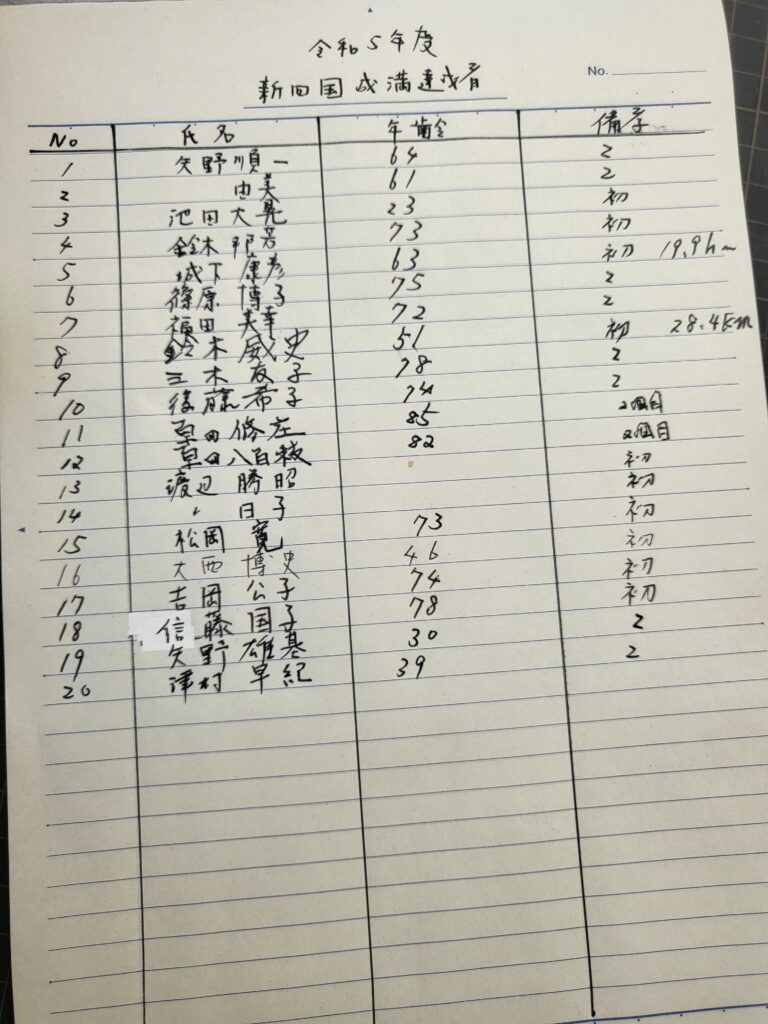 令和5年度
新四国成満達成者
No.
No 氏名 年齢 備考
1 矢野順一 64 2
2 由美 61 2
3 池田大晃 23 初
4 鈴木邦芳 73 初
5 城下康彦 63 初 19.9km
6 篠原博子 75 2
7 福田美幸 72 2
8 鈴木威史 51 初 28.4km
9 三木友子 78 2
10 後藤希子 74 2
11 草田修左 85 2回目
12 草田八百 82 2回目
13 渡辺勝昭 初
14 〃 日子 初
15 松岡寛 73 初
16 大西博史 46 初
17 吉岡公子 74 初
18 信藤国子 78 初
19 矢野雄基 30 2
20 津村早紀 39 2